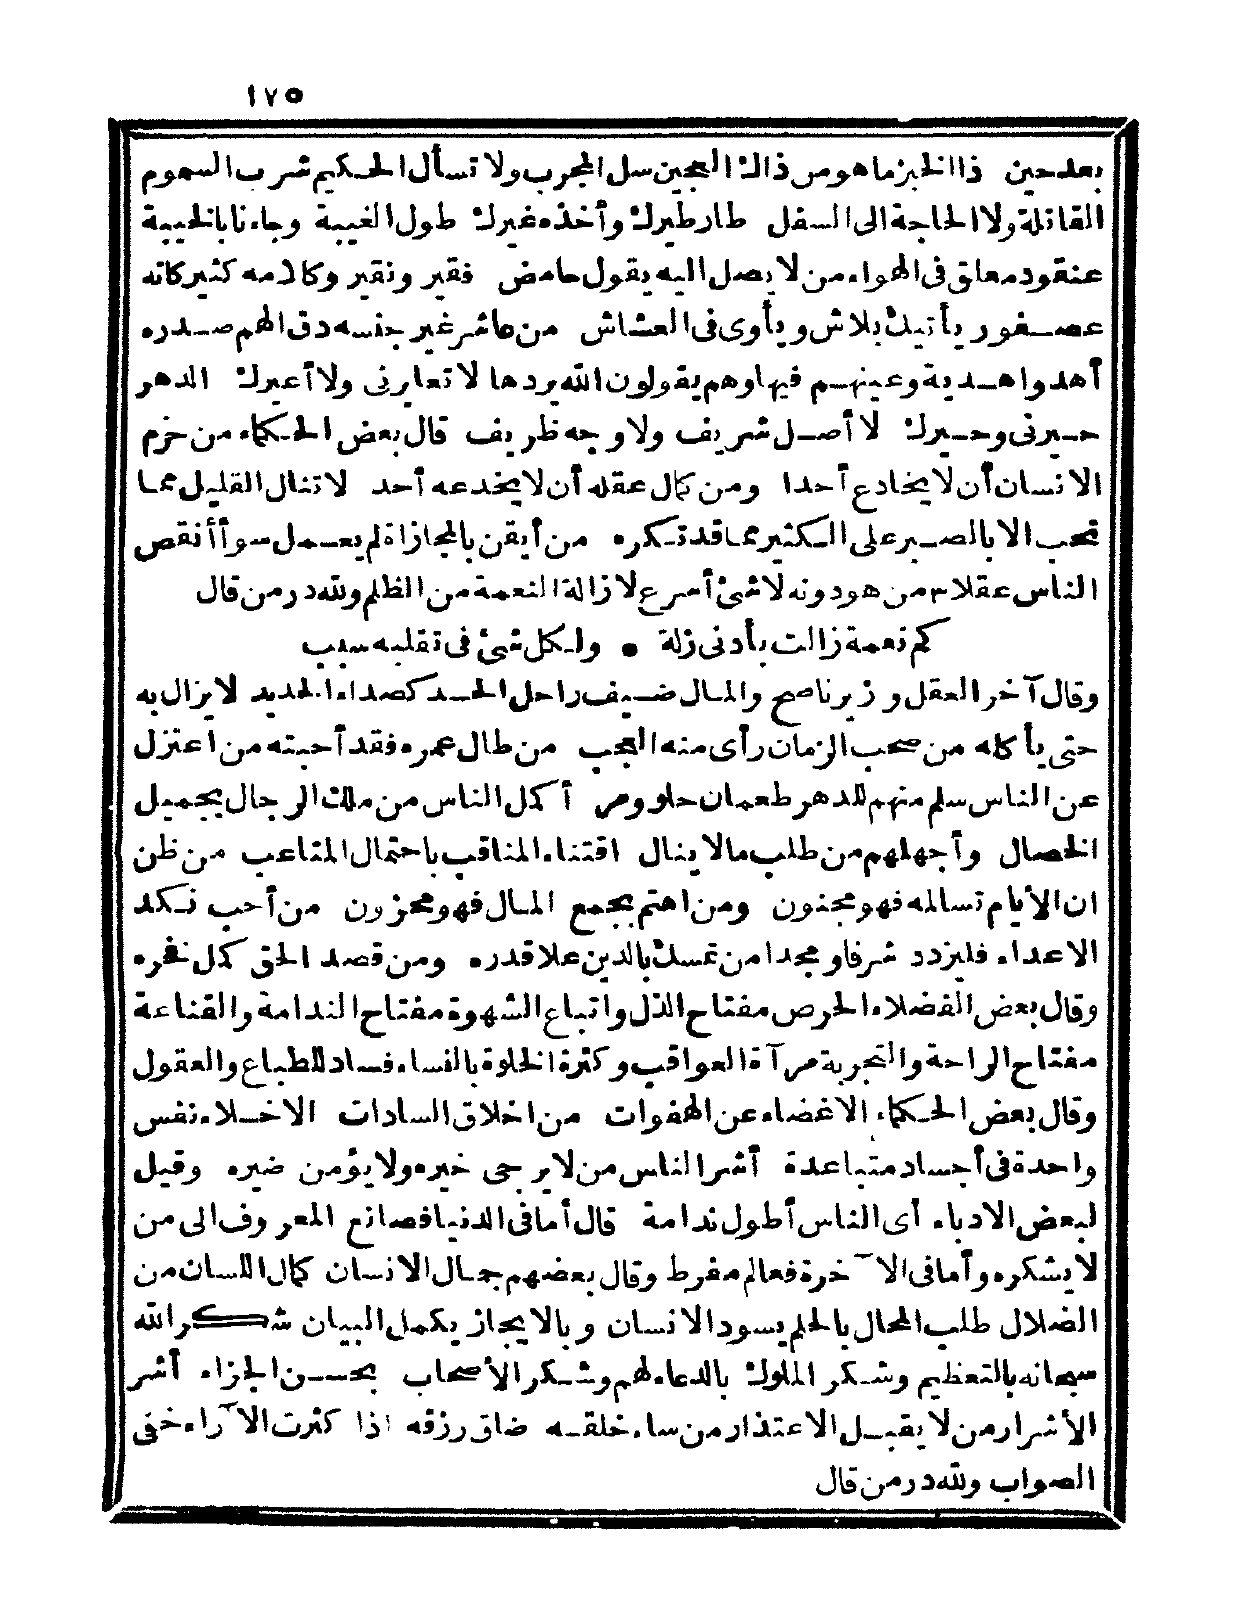 ١٧٥
بعد حين ذا الخبز ما هو من ذاك العجين سل المجرب ولا تسأل الحكيم شرب السموم
القاتلة ولا الحاجة الى السفل طار طيرك وأخذه غيرك طول الغيبة وجاءنا بالخيبة
عنقود معلق فى الهواء من لا يصل اليه يقول حامض فقير ونقير وكلامه كثير كانه
عصفور يأتيك بلاش ويأوى فى العشاش من عاشر غير جنسه دق الهم صدره
أهدوا هدية وعينهم فيها وهم يقولون الله يردها لا تعايرنى ولا أعيرك الدهر
حيرنى وحيرك لا أصل شريف ولا وجه ظريف قال بعض الحكماء من حزم
الانسان أن لا يخادع أحدا ومن كمال عقله أن لا يخدعه أحد لا تنال القليل مما
تحب الا بالصبر على الكثير مما قد تكره من أيقن بالمجازاة لم يعمل سوأ أنقص
الناس عقلا من هو دونه لا شئ أسرع لازالة النعمة من الظلم ولله در من قال
كم نعمة زالت بأدنى زلة • ولكل شئ فى تقلبه سبب
وقال آخر العقل وزير ناصح والمال ضيف راحل الحسد كصداء الحديد لا يزال به
حتى يأكله من صحب الزمان رأى منه العجب من طال عمره فقد أحبته من اعتزل
عن الناس سلم منهم للدهر طعمان حلو ومر أكمل الناس من ملك الرجال بجميل
الخصال وأجهلهم من طلب مالا ينال اقتناء المناقب باحتمال المتاعب من ظن
ان الأيام تسالمه فهو مجنون ومن اهتم بجمع المال فهو محزون من أحب نكد
الاعداء فليزدد شرفا ومجدا من تمسك بالدين علا قدره ومن قصد الحق كمل فخره
وقال بعض الفضلاء الحرص مفتاح الذل واتباع الشهوة مفتاح الندامة والقناعة
مفتاح الراحة والتجربة مرآة العواقب وكثرة الخلوة بالنساء فساد للطباع والعقول
وقال بعض الحكماء الاغضاء عن الهفوات من اخلاق السادات الاخلاء نفس
واحدة فى أجساد متباعدة أشر الناس من لا يرجى خيره ولا يؤمن ضيره وقيل
لبعض الادباء أى الناس أطول ندامة قال أما فى الدنيا فصانع المعروف الى من
لا يشكره وأما فى الآخرة فعالم مفرط وقال بعضهم جمال الانسان كمال اللسان من
الضلال طلب المحال بالحلم يسود الانسان وبالايجاز يكمل البيان شكر الله
سبحانه بالتعظيم وشكر الملوك بالدعاء لهم وشكر الأصحاب بحسن الجزاء أشر
الأشرار من لا يقبل الاعتذار من ساء خلقه ضاق رزقه اذا كثرت الآراء خفى
الصواب ولله در من قال